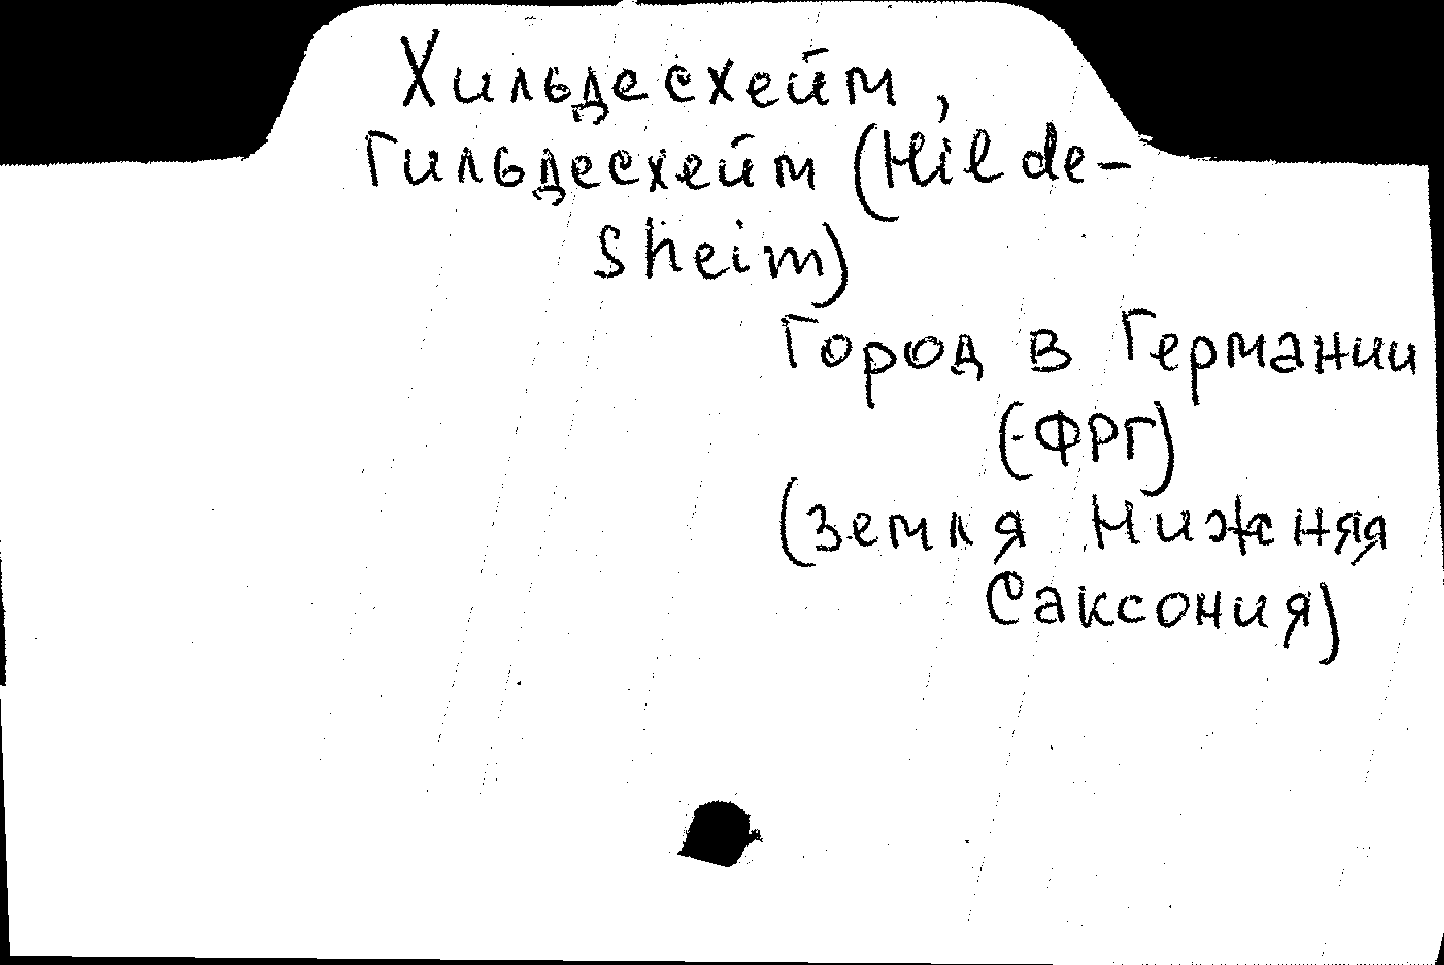 Хильдесхейм,
Гильдесхейм (Hilde-
sheim)
Город в Германии
(-ФРГ)
(Земля Нижняя
Саксония)